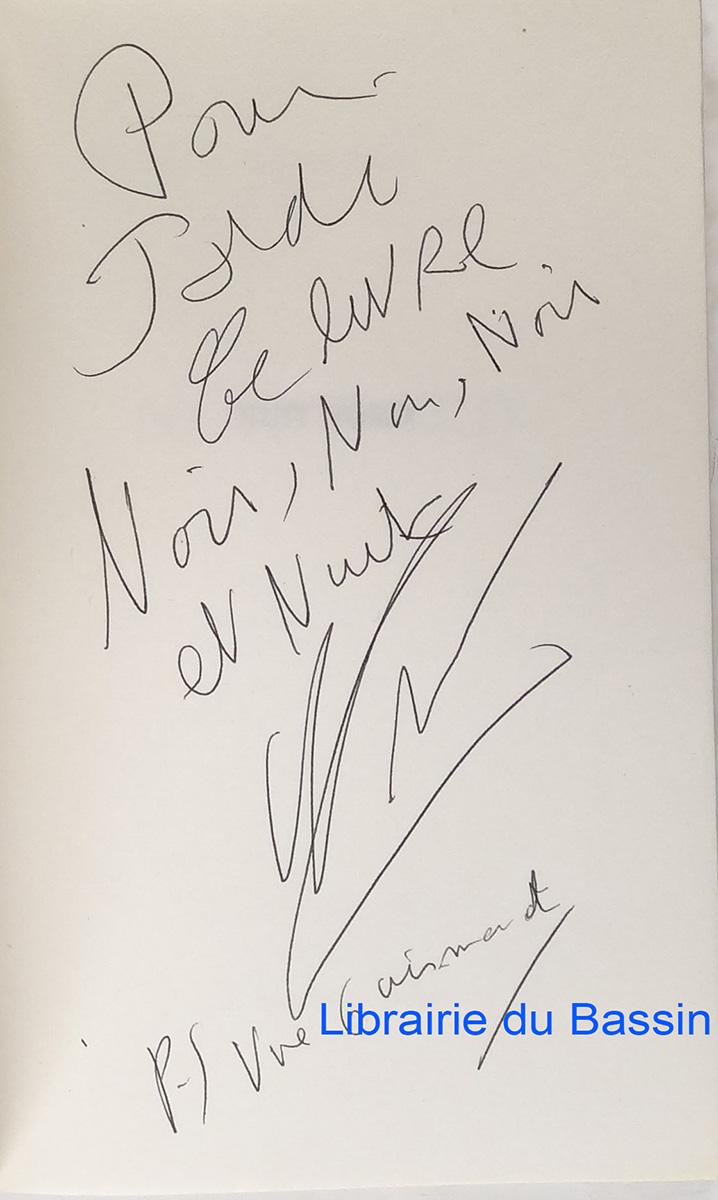 Pour
Tardi
Ce livre
Noir, Noir, Noir
et Nuit
P.S Vive
Librairie du Bassin